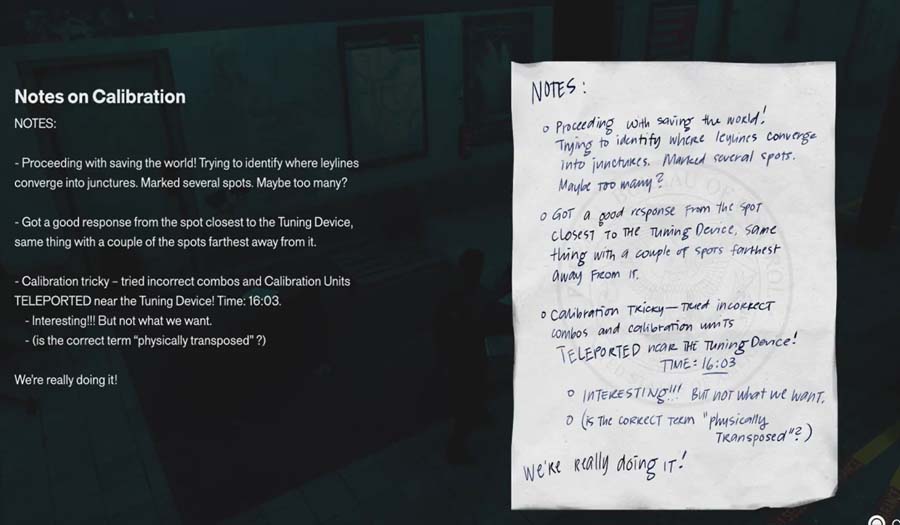 Notes on Calibration
NOTES:
- Proceeding with saving the world! Trying to identify where leylines
converge into junctures. Marked several spots. Maybe too many?
- Got a good response from the spot closest to the Tuning Device,
same thing with a couple of the spots farthest away from it.
- Calibration tricky – tried incorrect combos and Calibration Units
TELEPORTED near the Tuning Device! Time: 16:03.
- Interesting!!! But not what we want.
- (is the correct term “physically transposed” ?)
We're really doing it!
NOTES:
Proceeding with saving the world!
Trying to identify where leylines converge
into junctures. Marked several spots.
Maybe too many?
GOT a good response from the spot
closest to the Tuning Device, same
thing with a couple of spots farthest
away from it.
Calibration tricky – tried incorrect
combos and calibration units
TELEPORTED near the Tuning Device!
TIME: 16:03
INTERESTING!!! But not what we want.
(is the correct term "physically
transposed"?)
We're really doing it!